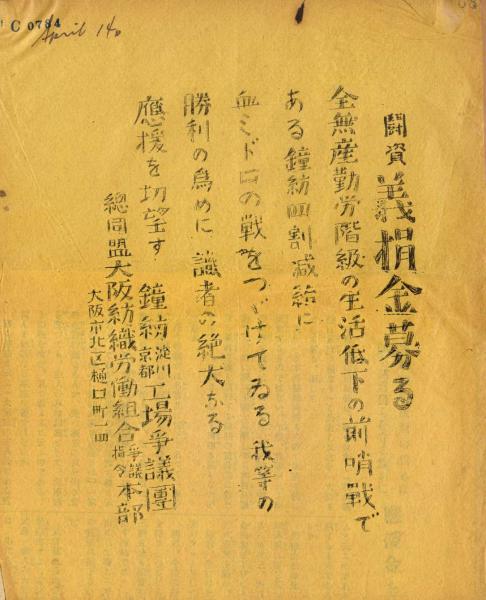 C 0784
April 14
闘資義捐金募る
全無産勤労階級の生活低下の前哨戦で
ある鐘紡四割減給に
血ミドロの戦をつゞけてゐる我等の
勝利の為めに識者の絶大なる
應援を切望す
鐘紡淀川京都工場爭議團
總同盟大阪紡織労働組合爭議指令本部
大阪市北区樋口町一四